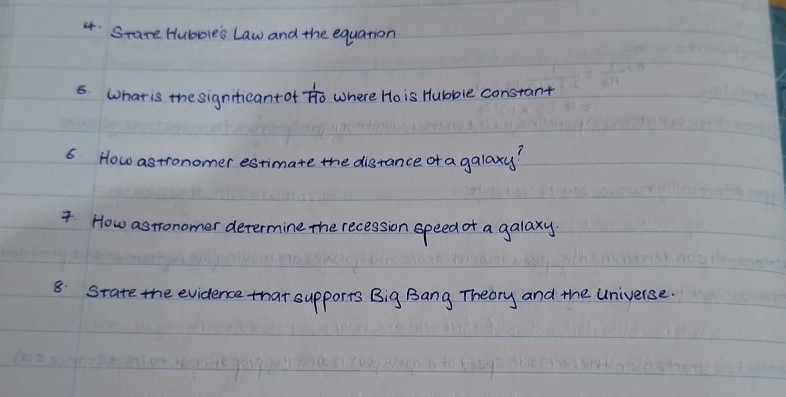 4. State Hubble's Law and the equation.
5. What is the significant of 1/Ho where Ho is Hubble constant
6 How astronomer estimate the distance of a galaxy?
7 How astronomer determine the recession speed of a galaxy.
8. State the evidence that supports Big Bang Theory and the Universe.